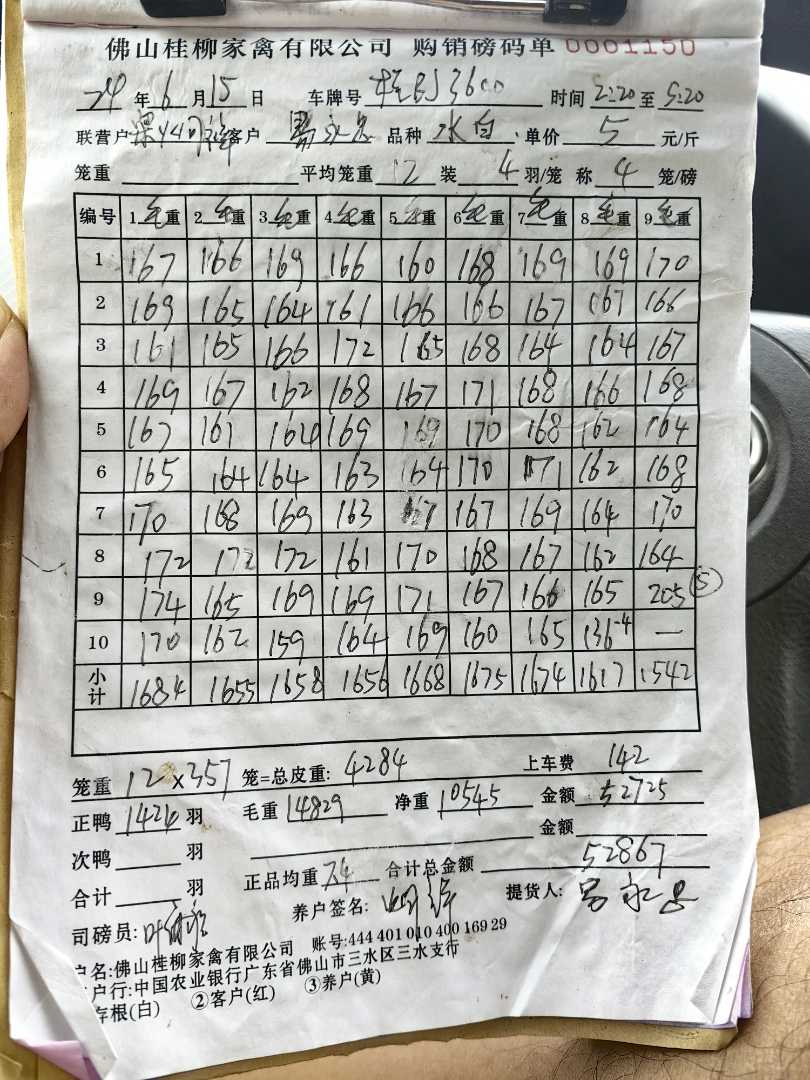 佛山桂柳家禽有限公司 购销磅码单 0001150
24年6月15日 车牌号 3600 时间 2:20至5:20
联营户 客户 品种 水白 单价 5 元/斤
笼重 平均笼重 12 装 4 羽/笼 称 4 笼/磅
编号 1毛重 2毛重 3毛重 4毛重 5毛重 6毛重 7毛重 8毛重 9毛重
1 167 166 169 166 160 168 169 169 170
2 169 165 164 161 166 166 167 167 166
3 161 165 166 172 165 168 164 164 167
4 169 167 162 168 167 171 168 166 168
5 167 161 164 169 169 170 168 162 164
6 165 164 164 163 164 170 171 162 168
7 170 168 169 163 167 167 169 164 170
8 172 172 172 161 170 168 167 162 164
9 174 165 169 169 171 167 166 165 205 ⑤
10 170 162 159 164 169 160 165 136-4 —
小计 1684 1655 1658 1656 1668 1675 1674 1617 1542
笼重 12×357 笼=总皮重: 4284 上车费 142
正鸭 1426 羽 毛重 14829 净重 10545 金额 52725
次鸭 羽 金额
合计 羽 正品均重 7.4 合计总金额 52867
司磅员: 养户签名: 提货人:
户名:佛山桂柳家禽有限公司 账号:444 401 010 400 169 29
户行:中国农业银行广东省佛山市三水区三水支行
存根(白) ②客户(红) ③养户(黄)